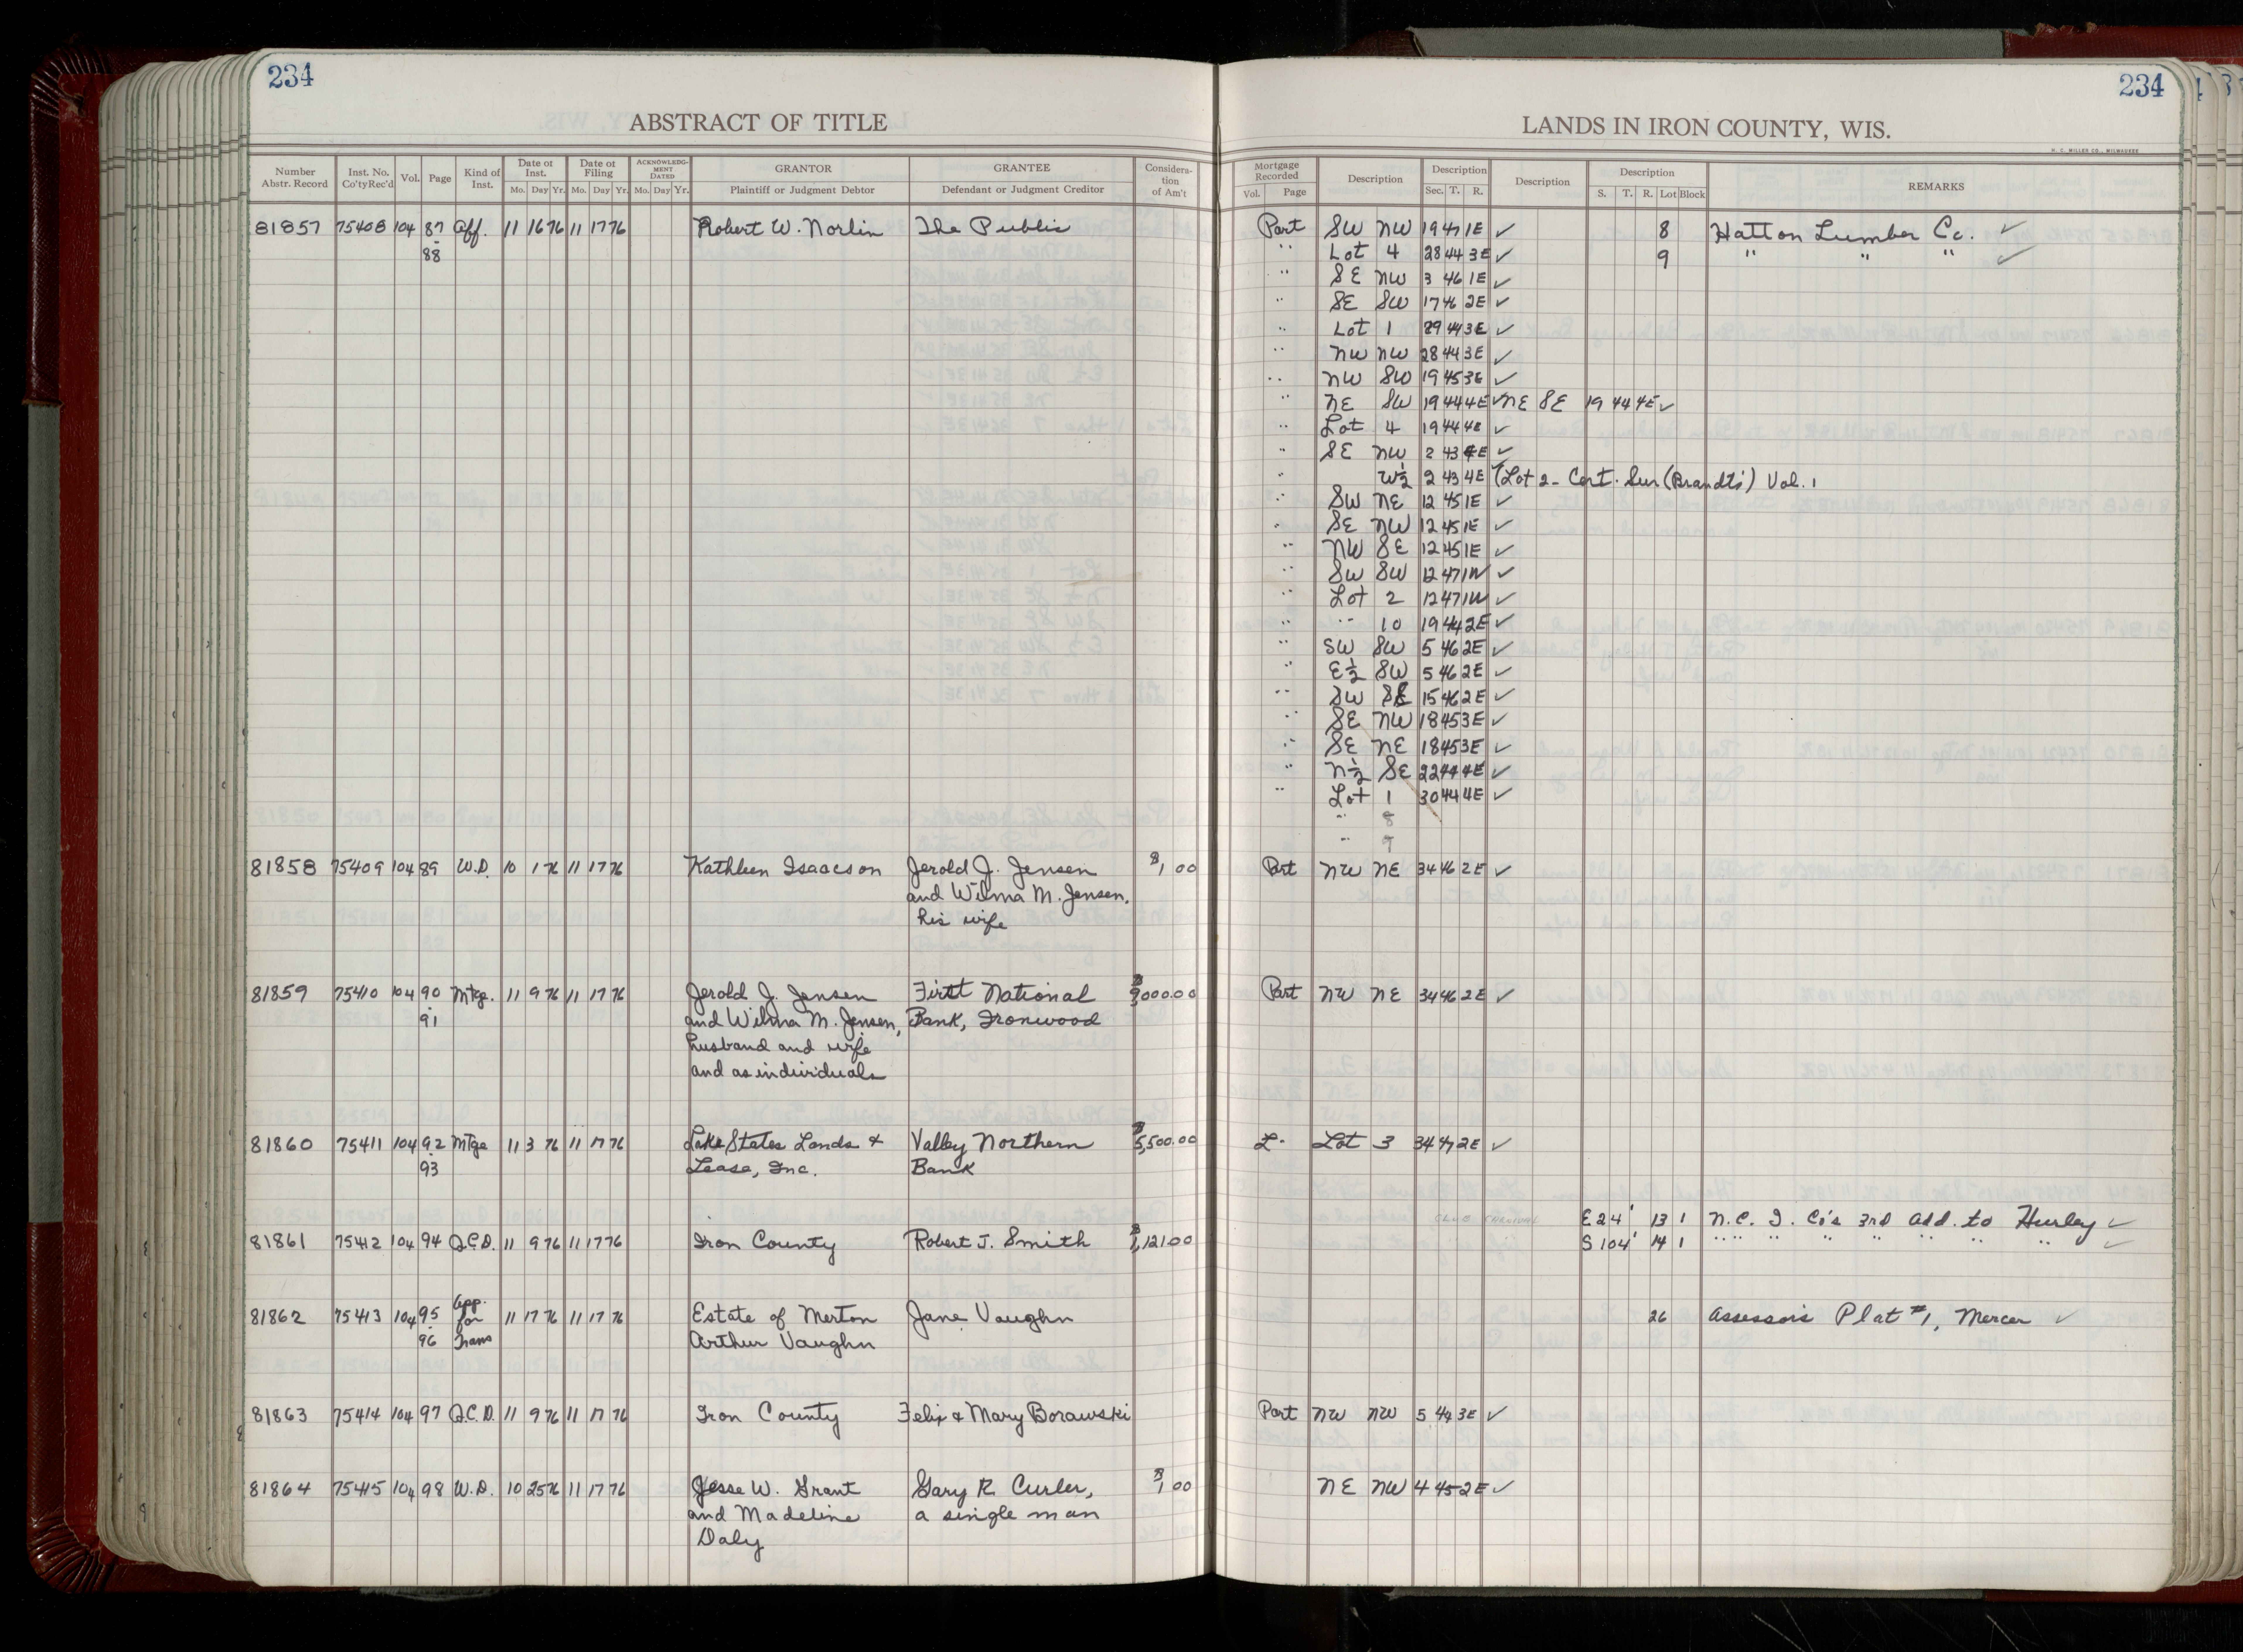 234
234
ABSTRACT OF TITLE
LANDS IN IRON COUNTY, WIS.
H. C. MILLER CO., MILWAUKEE
Number Abstr. Record Inst. No. Co'ty Rec'd Vol. Page Kind of Inst. Date of Inst. Mo. Day Yr. Date of Filing Mo. Day Yr. ACKNOWLEDGMENT DATED Mo. Day Yr. GRANTOR Plaintiff or Judgment Debtor GRANTEE Defendant or Judgment Creditor Consideration of Am't
Mortgage Recorded Vol. Page Description Description Sec. T. R. Description Description S. T. R. Lot Block REMARKS
81857 75408 104 87 Aff. 11 16 76 11 17 76 Robert W. Norlin The Public Part SW NW 19 47 1E ✓ 8 Hatton Lumber Co. ✓
88 " Lot 4 28 44 3E ✓ 9 " " " ✓
" SE NW 3 46 1E ✓
" SE SW 17 46 2E ✓
" Lot 1 29 44 3E ✓
" NW NW 28 44 3E ✓
" NW SW 19 45 3E ✓
" NE SW 19 44 4E ✓ NE SE 19 44 4E ✓
" Lot 4 19 44 4E ✓
" SE NW 2 43 4E ✓
" W½ 2 43 4E (Lot 2 - Cert. Sur (Brandt's) Vol. 1
" SW NE 12 45 1E ✓
" SE NW 12 45 1E ✓
" NW SE 12 45 1E ✓
" SW SW 12 47 1W ✓
" Lot 2 12 47 1W ✓
" " 10 19 44 2E ✓
" SW SW 5 46 2E ✓
" E½ SW 5 46 2E ✓
" SW SE 15 46 2E ✓
" SE NW 18 45 3E ✓
" SE NE 18 45 3E ✓
" N½ SE 22 44 4E ✓
" Lot 1 30 44 4E ✓
" 8
" 9
81858 75409 104 89 W.D. 10 1 76 11 17 76 Kathleen Isaacson Jerold J. Jensen $1 00 Part NW NE 34 46 2E ✓
and Wilma M. Jensen,
his wife
81859 75410 104 90 Mtge. 11 9 76 11 17 76 Jerold J. Jensen First National $9000.00 Part NW NE 34 46 2E ✓
91 and Wilma M. Jensen, Bank, Ironwood
husband and wife
and as individuals
81860 75411 104 92 Mtge 11 3 76 11 17 76 Lake States Lands & Valley Northern $5,500.00 L. Lot 3 34 47 2E ✓
93 Lease, Inc. Bank
E 24' 13 1 N. C. I. Co's 3rd Add. to Hurley ✓
81861 75412 104 94 Q.C.D. 11 9 76 11 17 76 Iron County Robert J. Smith $1,121.00 S 104' 14 1 " " " " " " " " ✓
81862 75413 104 95 App. for Trans 11 17 76 11 17 76 Estate of Merton Jane Vaughn 26 Assessor's Plat #1, Mercer ✓
96 Arthur Vaughn
81863 75414 104 97 Q.C.D. 11 9 76 11 17 76 Iron County Felix & Mary Borawski Part NW NW 5 44 3E ✓
81864 75415 104 98 W.D. 10 25 76 11 17 76 Jesse W. Grant Gary R. Curler, $1 00 NE NW 4 45 2E ✓
and Madeline a single man
Daly